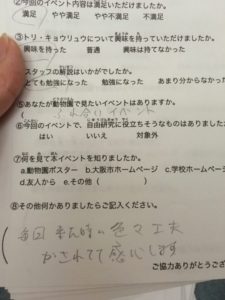 ②今回のイベント内容は満足いただけましたか。
満足 やや満足 やや不満足 不満足
③トリ・キョウリュウについて興味を持っていただけましたか。
興味を持った 普通 興味は持てなかった
スタッフの解説はいかがでしたか。
とても勉強になった 勉強になった あまり分からなかった
⑤あなたが動物園で見たいイベントはありますか。
ふれ合いイベント
⑥今回のイベントで、自由研究に役立ちそうなものはありました
はい いいえ 対象外
⑦何を見て本イベントを知りましたか。
a.動物園ポスター b.大阪市ホームページ c.学校ホームペー
d.友人から e.その他( )
⑧その他何かありましたらご記入ください。
毎回 来た時に色々工夫
がされてて感心します
ご協力ありがとうござ